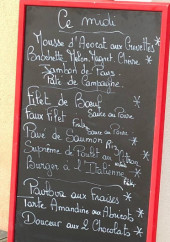 Ce midi
Mousse d'Avocat aux Crevettes *
Melon, Magret, Chèvre *
Jambon de Pays
Pâté de Campagne
Filet de Bœuf *
Faux Filet Sauce au Poivre
Sauce au Poivre *
Pavé de Saumon Riz *
Suprême de Poulet au
Burger à l'Italienne *
aux Fraises *
Tarte Amandine aux Abricots *
Douceur aux 2 Chocolats *